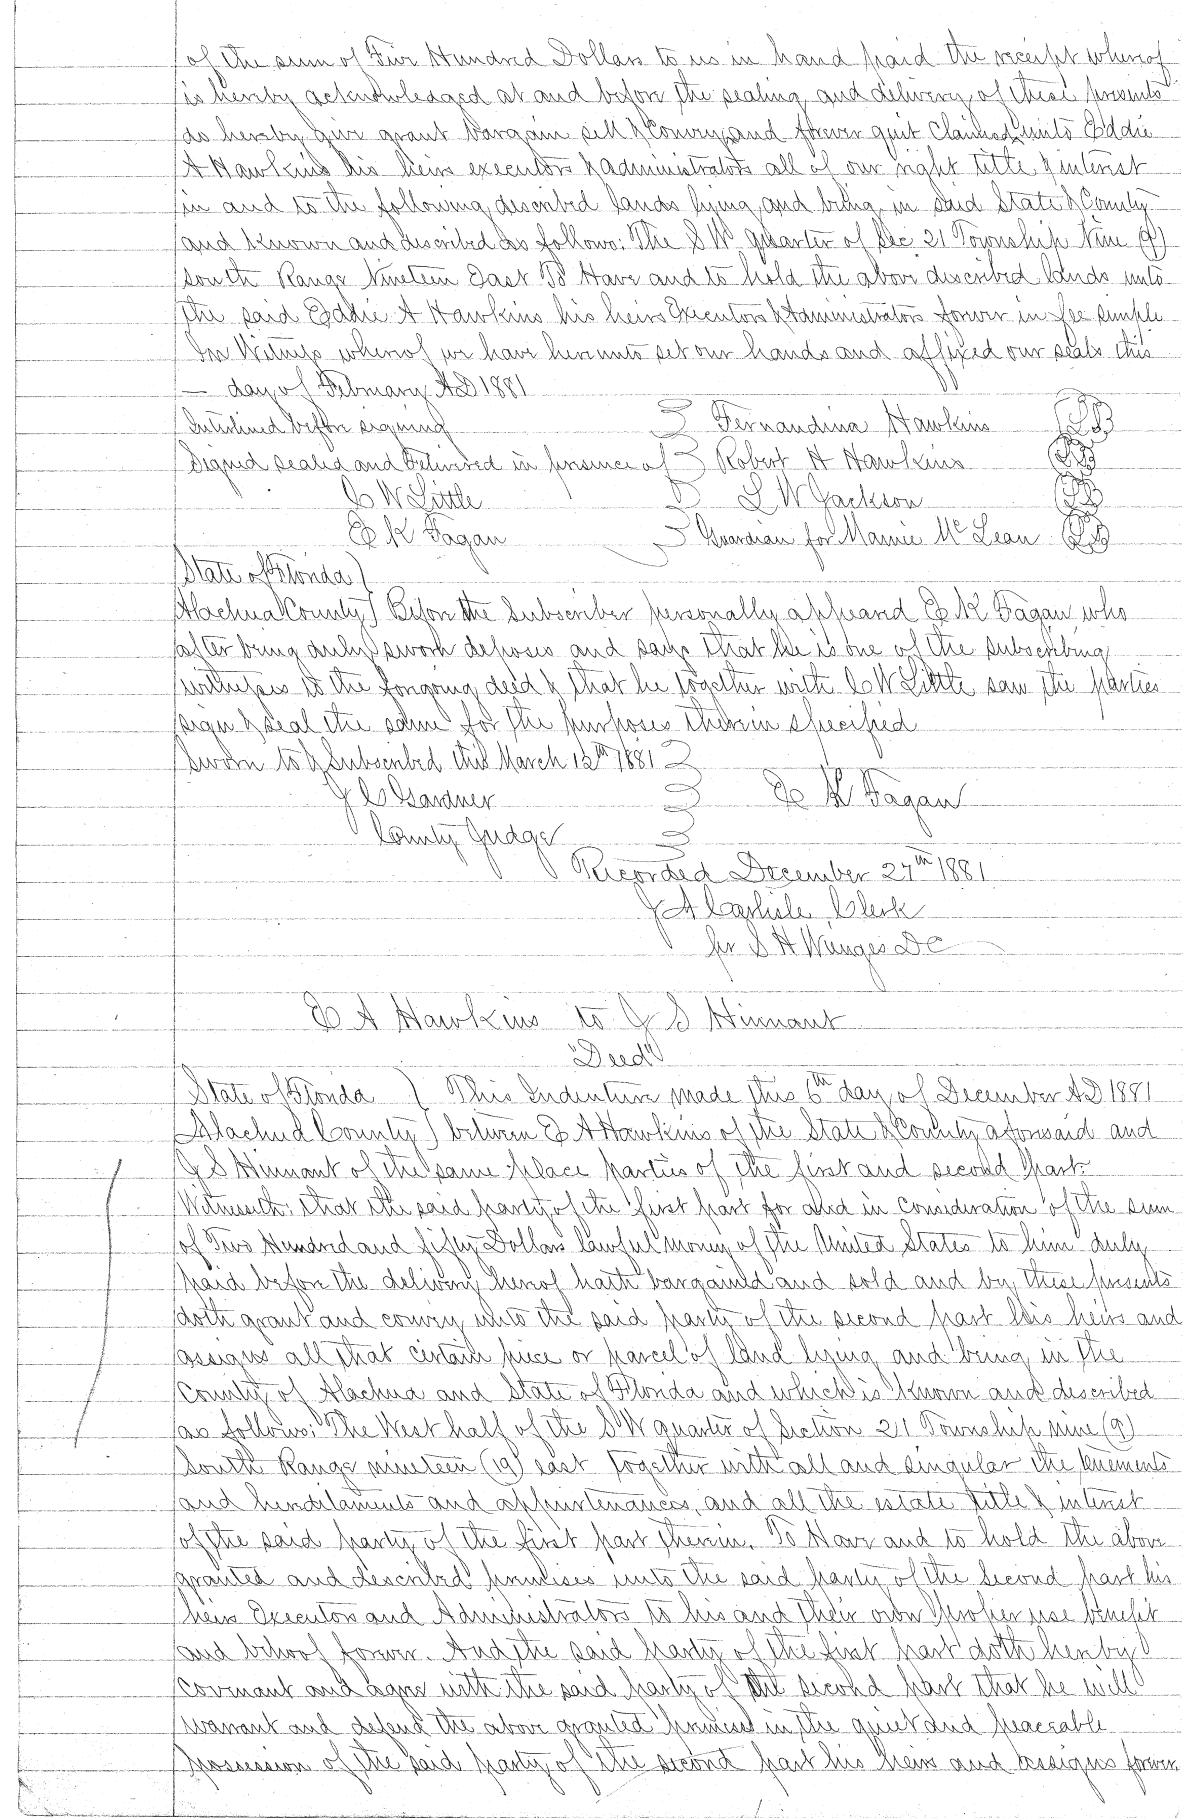 of the sum of Five Hundred Dollars to us in hand paid the receipt whereof
is hereby acknowledged at and before the sealing and delivery of these presents
do hereby give grant bargain sell & Convey and forever quit Claimed unto Eddie
A Hawkins his heirs executors & administrators all of our right title & interest
in and to the following described lands lying and being in said State & County
and known and described as follows: The S W quarter of Sec 21 Township Nine (9)
south Range Nineteen East To Have and to hold the above described lands unto
the said Eddie A Hawkins his heirs Executors & Administrators forever in fee simple
In Witness whereof we have hereunto set our hands and affixed our seals this
— day of February AD 1881
Interlined before signing } Fernandina Hawkins
Signed sealed and Delivered in presence of } Robert H Hawkins
C W Little } L W Jackson
E K Fagan } Guardian for Mamie Mc Lean
State of Florida }
Alachua County } Before the Subscriber personally appeard E K Fagan who
after being duly sworn deposes and says that he is one of the subscribing
witness to the forgoing deed & that he together with C W Little saw the parties
sign & seal the same for the purposes therein specified
Sworn to & Subscribed this March 12th 1881 }
J C Gardner } E K Fagan
County Judge }
Recorded December 27th 1881
J A Carlisle, Clerk
S H DC
E A Hawkins to J S Hinnant
"Deed"
State of Florida } This Indenture made this 6th day of December AD 1881
Alachua County } between E A Hawkins of the State & County aforesaid and
J S Hinnant of the same place parties of the first and second part.
Witnesseth: that the said party of the first part for and in consideration of the sum
of Two Hundred and fifty Dollars lawful money of the United States to him duly
paid before the delivery hereof hath bargained and sold and by these presents
doth grant and convey unto the said party of the second part his heirs and
assigns all that certain piece or parcel of land lying and being in the
County of Alachua and State of Florida and which is known and described
as follows: The West half of the S W quarter of Section 21 Township nine (9)
South Range nineteen (19) east together with all and singular the tenements
and hereditaments and appurtenances, and all the estate title & interest
of the said party of the first part therein. To Have and to hold the above
granted and described premises unto the said party of the Second part his
heirs Executors and Administrators to his and their own proper use benefit
and behoof forever. And the said party of the first part doth hereby
covenant and agree with the said party of the second part that he will
warrant and defend the above granted premises in the quiet and peaceable
possession of the said party of the second part his heirs and assigns forever